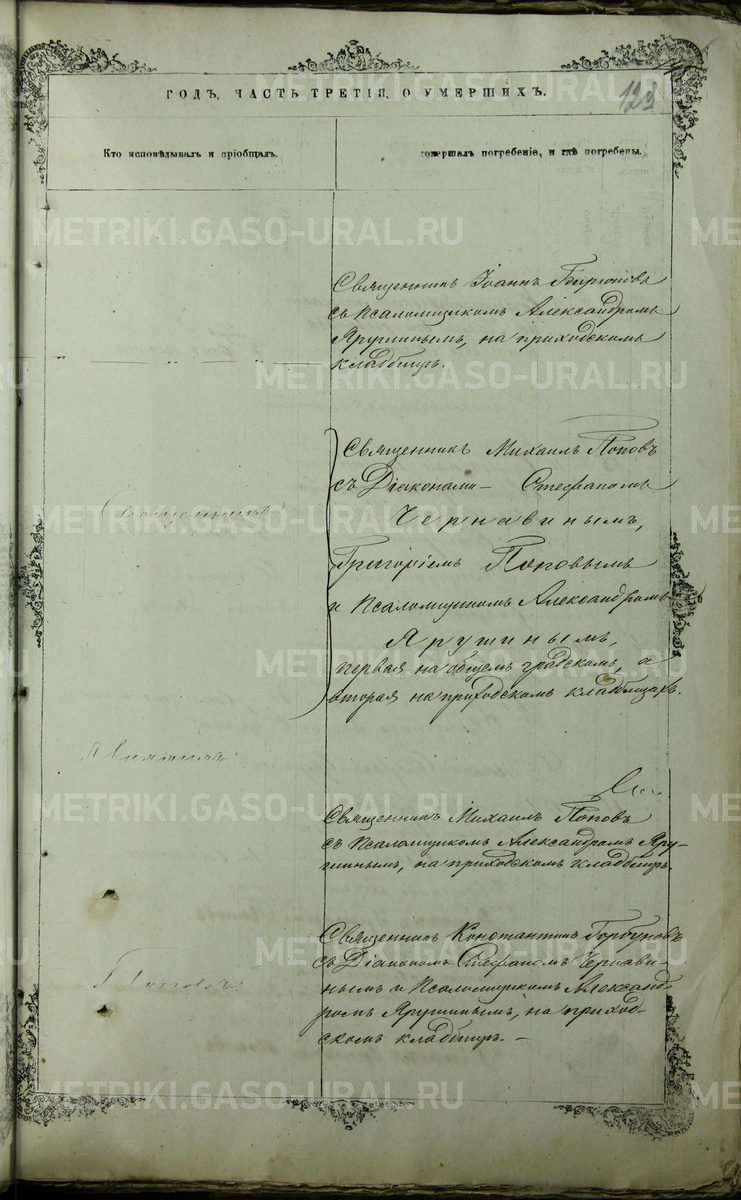 123
ГОДЪ, ЧАСТЬ ТРЕТІЯ, О УМЕРШИХЪ.
Кто исповѣдывалъ и пріобщалъ.
совершалъ погребеніе, и гдѣ погребены.
Священникъ Іоаннъ
съ псаломщикомъ Александромъ
Ярушинымъ, на приходскомъ
кладбищѣ.
Священникъ Михаилъ Поповъ
съ Діаконами - Стефаномъ
Чернавинымъ,
Григоріемъ Поповымъ
и Псаломщикомъ Александромъ
Ярушинымъ,
первая на общемъ градскомъ, а
вторая на приходскомъ кладбищахъ.
Священникъ Михаилъ Поповъ
съ Псаломщикомъ Александромъ Яру-
шинымъ, на приходскомъ кладбищѣ.
Священникъ Константинъ Горбуновъ
съ Діакономъ Стефаномъ Чернави-
нымъ и Псаломщикомъ Александ-
ромъ Ярушинымъ, на приход-
скомъ кладбищѣ. -
METRIKI.GASO-URAL.RU